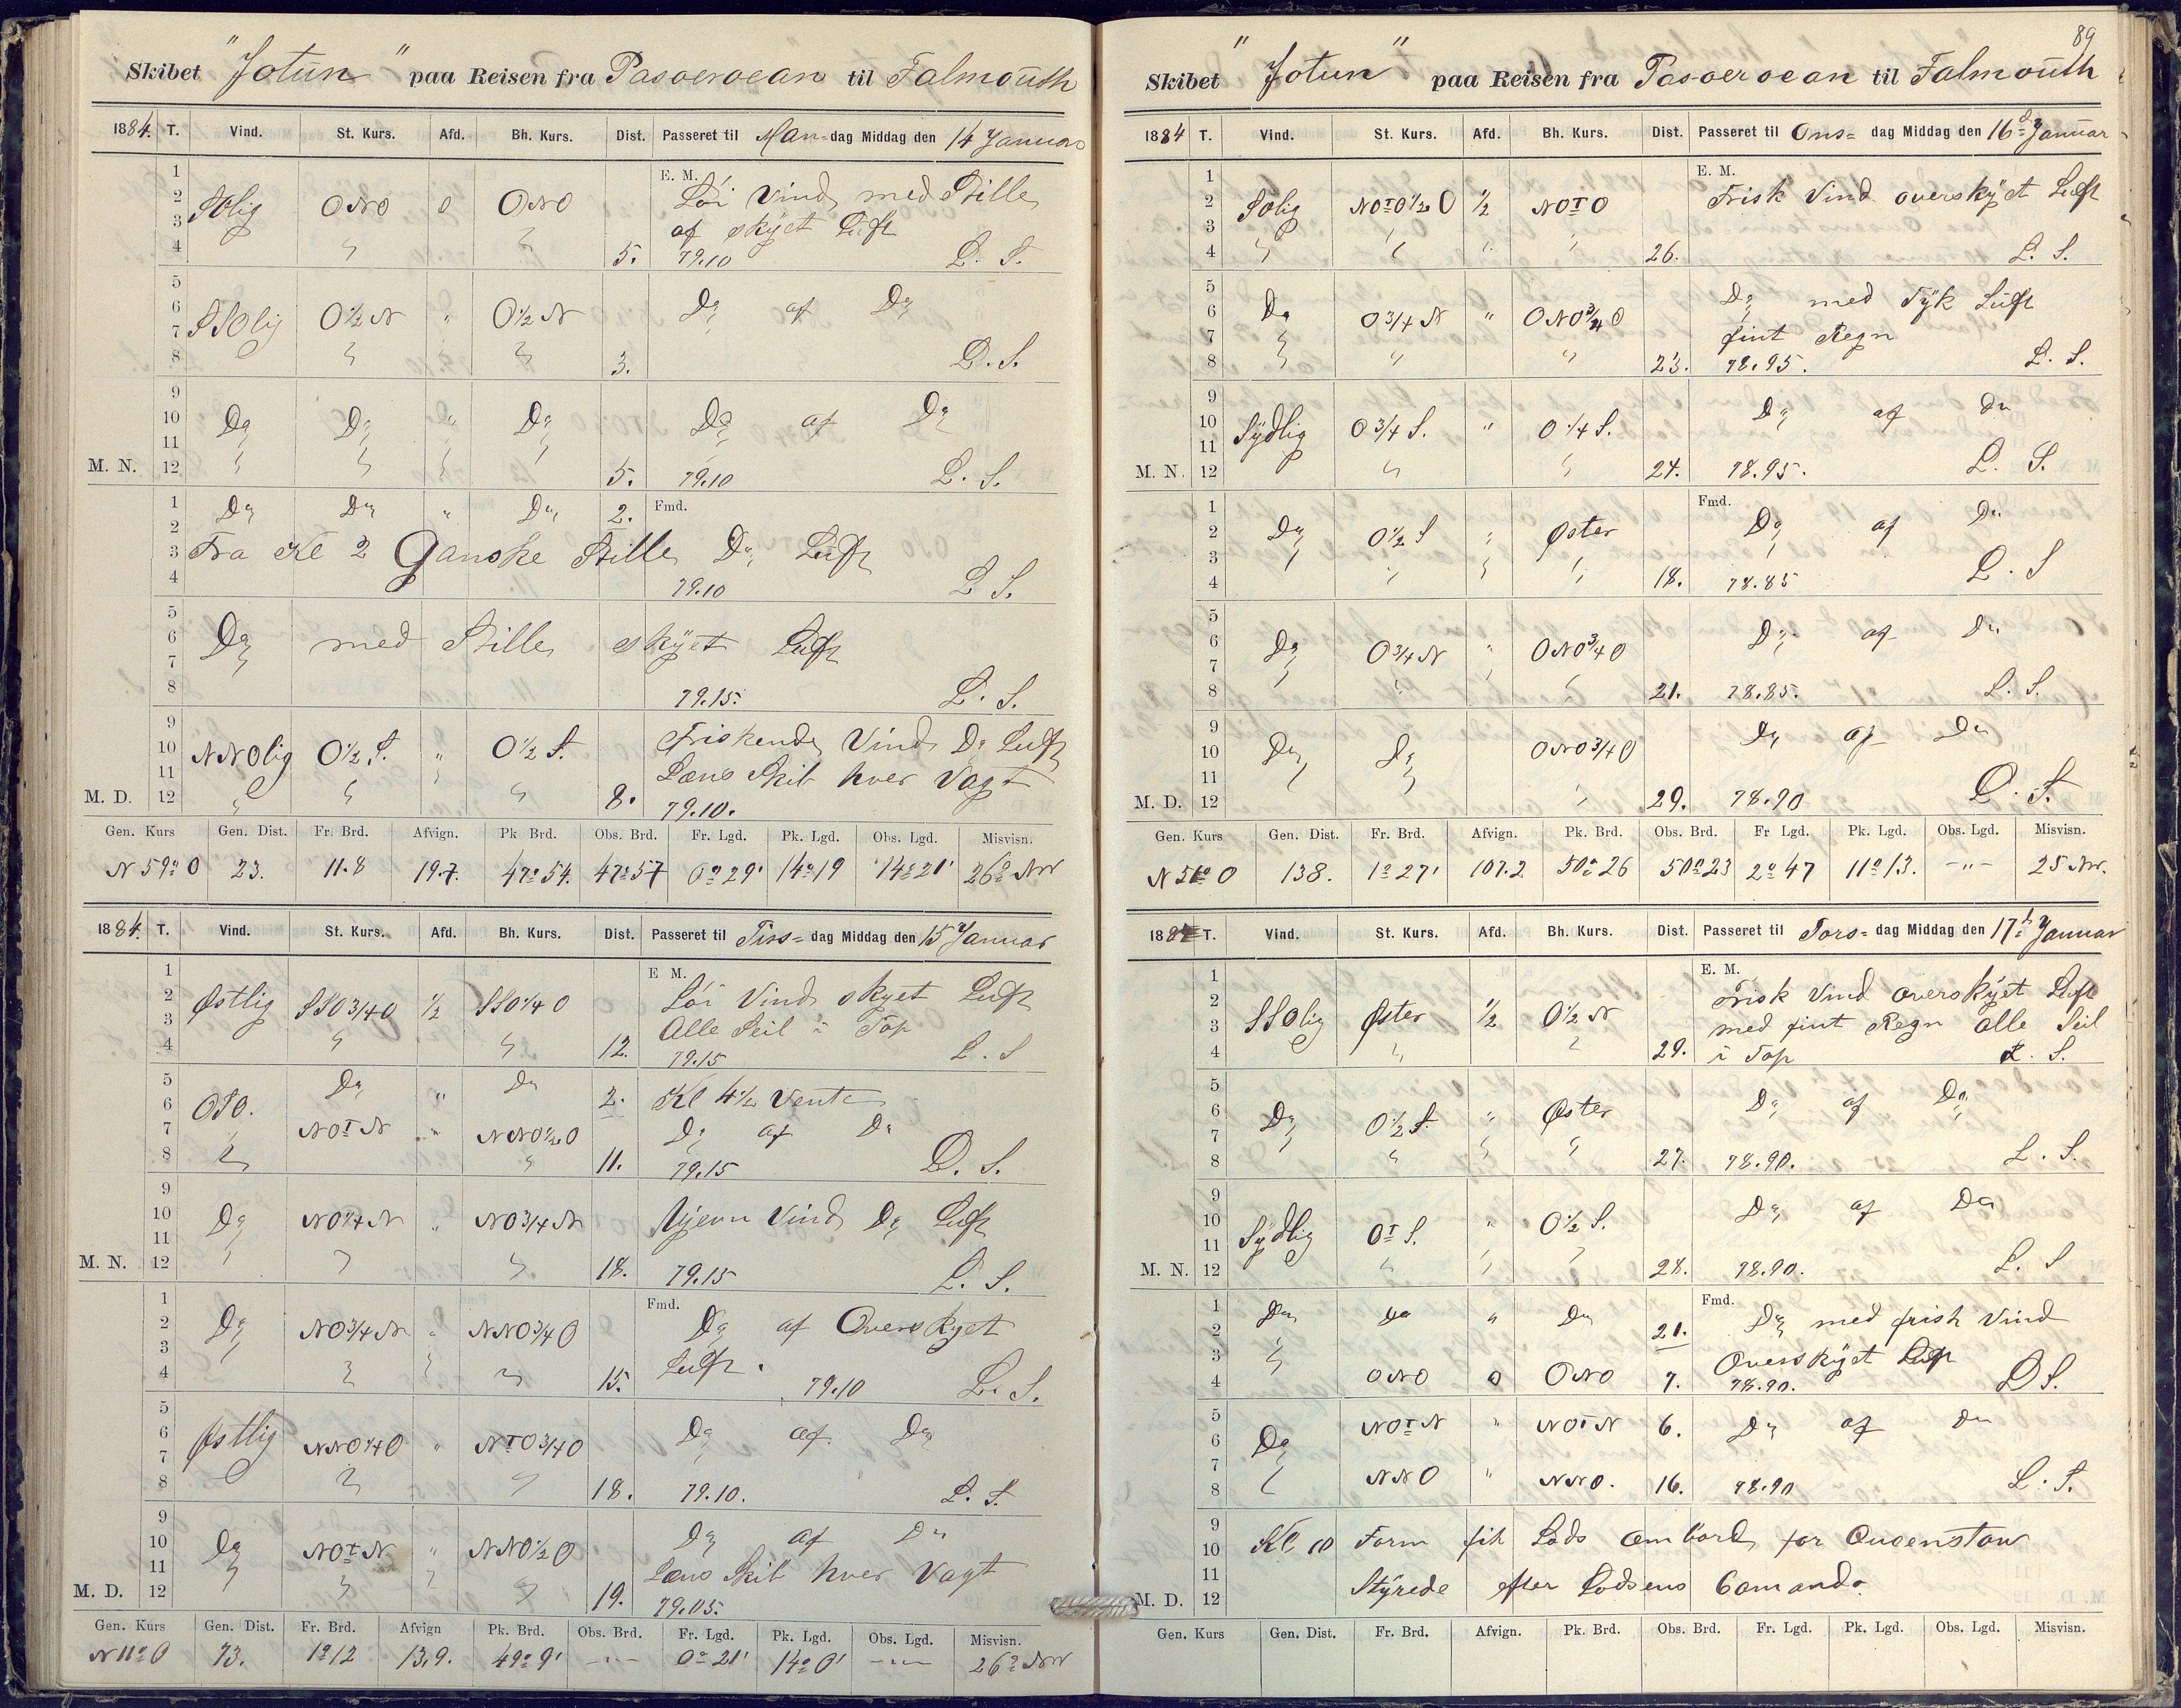 Skibet "Jotun" paa Reisen fra Pasoeroean til Falmouth
1884. T. Vind. St. Kurs. Afd. Bh. Kurs. Dist. Passeret til Man-dag Middag den 14 Januar
1 E. M.
2 SOlig ONO 0 ONO Løi Vind med Stille
3 af skyet Luft
4 " " 5. 79.10 L. S.
5
6 SSOlig O½N " O½N Do af Do
7
8 " " 3. L. S.
9
10 Do Do " Do Do af Do
11
M. N. 12 " " " " 5. 79.10 L. S.
1 Do Do " Do 2. Fmd.
2
3 Fra Kl 2 Ganske Stille Do Luft
4 79.10 L S.
5
6 Do med Stille skyet Luft
7
8 79.15. L. S.
9 Friskende Vind Do Luft
10 NNOlig O½S. " O½S.
11 Læns Skib hver Vagt
M. D. 12 " " " 8. 79.10.
Gen. Kurs Gen. Dist. Fr. Brd. Afvign. Pk Brd. Obs. Brd. Fr. Lgd. Pk. Lgd. Obs. Lgd. Misvisn.
N 59° O 23. 11.8 19.7. 47° 54. 47° 57 0° 29' 14° 19 14° 21' 26° NW
1884. T. Vind. St. Kurs. Afd. Bh. Kurs. Dist. Passeret til Tirs-dag Middag den 15 Januar
1 E M.
2 Østlig SSO¾O ½ SSO¼O Løi Vind skyet Luft
3 Alle Seil i Top
4 " " 12. 79.15 L. S
5 Do " Do 2. Kl 4½ Vente
6 OSO.
7 NOTN " NNO½O Do af Do
8 " " 11. 79.15 L. S.
9
10 Do NO¼N " NO¾N Ujevn Vind Do Luft
11
M. N. 12 " " " 18. 79.15 L. S.
1 Fmd.
2 Do NO¾N " NNO¾O Do af Overskyet
3 Luft.
4 " " " 15. 79.10 L. S.
5
6 Østlig NNO¼O " NTO¾O Do af Do
7
8 " " 18. 79.10. L. S.
9
10 Do NOTN " NNO½O Do af Do
11 Læns Skib hver Vagt
M. D. 12 " " " " 19. 79.05.
Gen. Kurs Gen. Dist. Fr. Brd. Afvign Pk. Brd. Obs. Brd. Fr. Lgd. Pk. Lgd. Obs. Lgd. Misvisn.
N 11° O 73. 1° 12 13,9. 49° 9' -"- 0° 21' 14° 0' -"- 26° NW
89
Skibet "Jotun" paa Reisen fra Pasoeroean til Falmouth
1884 T. Vind. St. Kurs. Afd. Bh. Kurs. Dist. Passeret til Ons-dag Middag den 16d Januar
1 E. M.
2 SOlig NOTO½O ½ NOTO Frisk Vind overskyet Luft
3
4 " " " " 26. L. S.
5
6 Do O¾N " ONO¾O Do med Tyk Luft
7 fint Regn
8 " " " 23. 78.95. L. S.
9
10 Sydlig O¾S. " O¼S. Do af Do
11
M. N. 12 " " 24. 78.95. L. S.
1 Fmd.
2 Do O½S " Øster Do af Do
3
4 " " " " 18. 78.85 L. S
5
6 Do O¾N " ONO¾O Do af Do
7
8 " " " 21. 78.85. L. S.
9
10 Do Do ONO¾O Do af Do
11
M. D. 12 " 29. 78.90 L. S.
Gen. Kurs Gen. Dist. Fr. Brd. Afvign. Pk. Brd. Obs. Brd. Fr Lgd. Pk. Lgd. Obs. Lgd. Misvisn.
N 51° O 138. 1° 27' 107.2 50° 26 50° 23 2° 47 11° 13. -"- 25 NW.
1884 T. Vind. St. Kurs. Afd. Bh. Kurs. Dist. Passeret til Tors-dag Middag den 17d Januar
1 E. M.
2 Frisk Vind overskyet Luft
3 SSOlig Øster ½ O½N med fint Regn alle Seil
4 " " 29. i Top L. S.
5
6 Do O½S. " Øster Do af Do
7
8 " " " 27. 78.90. L. S.
9
10 Do af Do
11 Sydlig OTS. " O½S.
M. N. 12 " " " 28. 78.90. L. S
1 Do Do " Do Fmd.
2 21. Do med frisk Vind
3 Overskyet Luft
4 ONO 0 ONO 7. 78.90. L S.
5 NOTN " NOTN 6. Do af Do
6 Do
7
8 NNO " NNO. 16. 78.90 L. S.
9 Kl. 10 Form fik Lods ombord for Queenstow
10
11 Styrede efter Lodsens Comando.
M. D. 12
Gen. Kurs Gen. Dist. Fr. Brd. Afvign. Pk. Brd. Obs. Brd. Fr. Lgd. Pk. Lgd. Obs. Lgd. Misvisn.